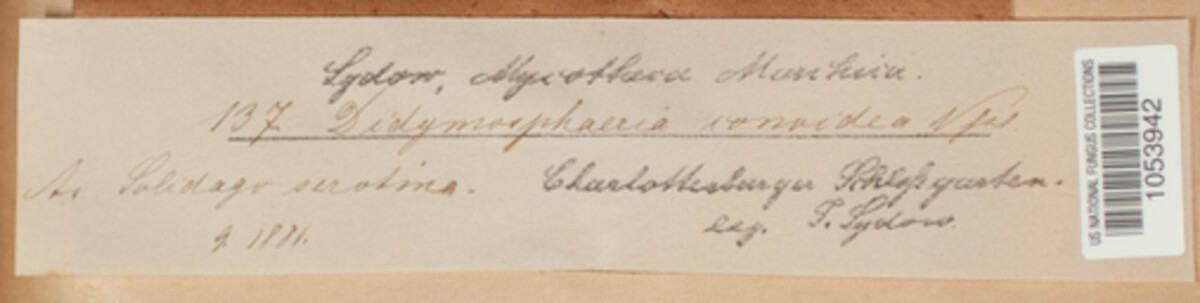 Sydow, Mycotheca Marchica.
137 Didymosphaeria conoidea Npl.
An Solidago serotina. Charlottenburger Schloßgarten.
9. 1881. leg. P. Sydow.
US NATIONAL FUNGUS COLLECTIONS
1053942